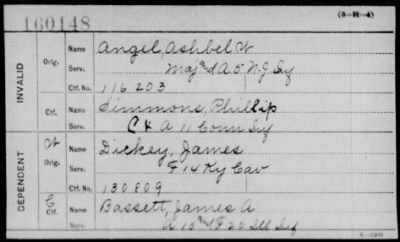 160148
(3-H-4)
INVALID
Orig.
Name
Angel, Ashbel W
Serv.
Maj & A 5 N.J. Inf
Ctf. No.
116203
Ctf.
Name
Simmons, Phillip
Serv.
C K A 11 Conn Inf
DEPENDENT
W
Orig.
Name
Dickey, James
Serv.
F 14 Ky Cav
Ctf. No.
130809
C
Ctf.
Name
Bassett, James A
Serv.
A 15 F 20 Ill Inf